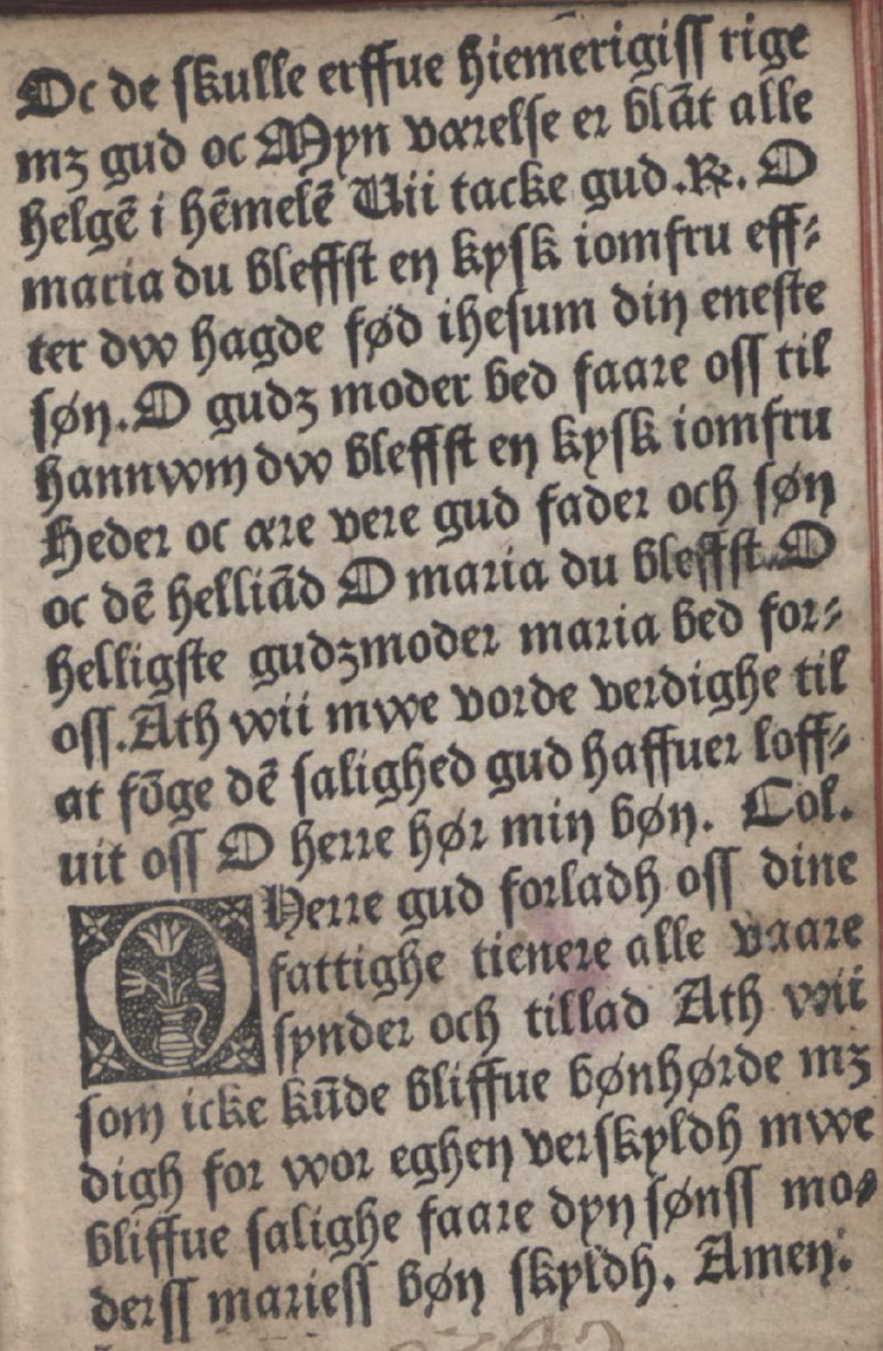 Oc de skulle erffue hiem̄erigiss rige
mꝫ gud oc Myn værelse er blāt alle
helgē i hēmelē Uii tacke gud .R. O
maria du bleffst en kysk iomfru eff⸗
ter dw hagde fød ihesum din eneste
søn. O gudꝫ moder bed faare oss til
hannwm dw bleffst en kysk iomfru
Heder oc ære vere gud fader och søn
oc dē helliād O maria du bleffst. O
helligste gudꝫmoder maria bed for⸗
oss. Ath wii mwe vorde verdighe til
at fōge dē salighed gud haffuer loff⸗
uit oss O herre hør min bøn. Col.
O Herre gud forladh oss dine
fattighe tienere alle vaare
synder och tillad Ath wii
som icke kūde bliffue bønhørde mꝫ
digh for wor eghen verskyldh mwe
bliffue salighe faare dyn sønss mo⸗
derss mariess bøn skyldh. Amen.